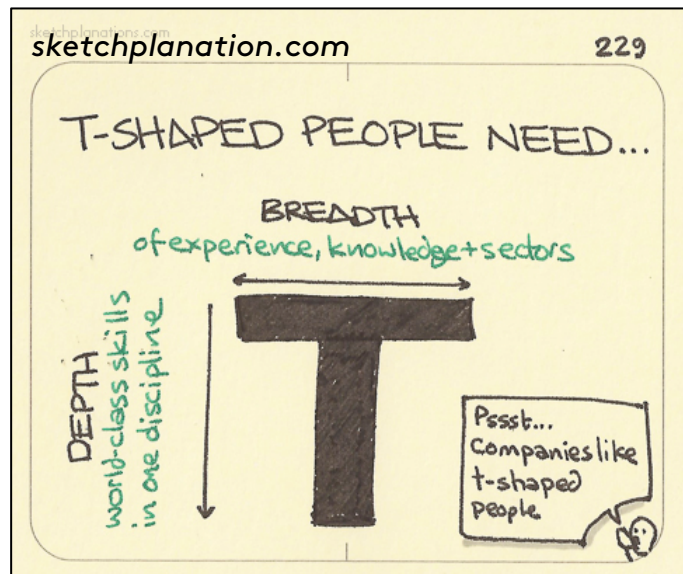 sketchplanations.com
sketchplanation.com
229
T-SHAPED PEOPLE NEED...
BREADTH
of experience, knowledge+sectors
DEPTH
world-class skills
in one discipline
T
Pssst...
Companies like
t-shaped
people